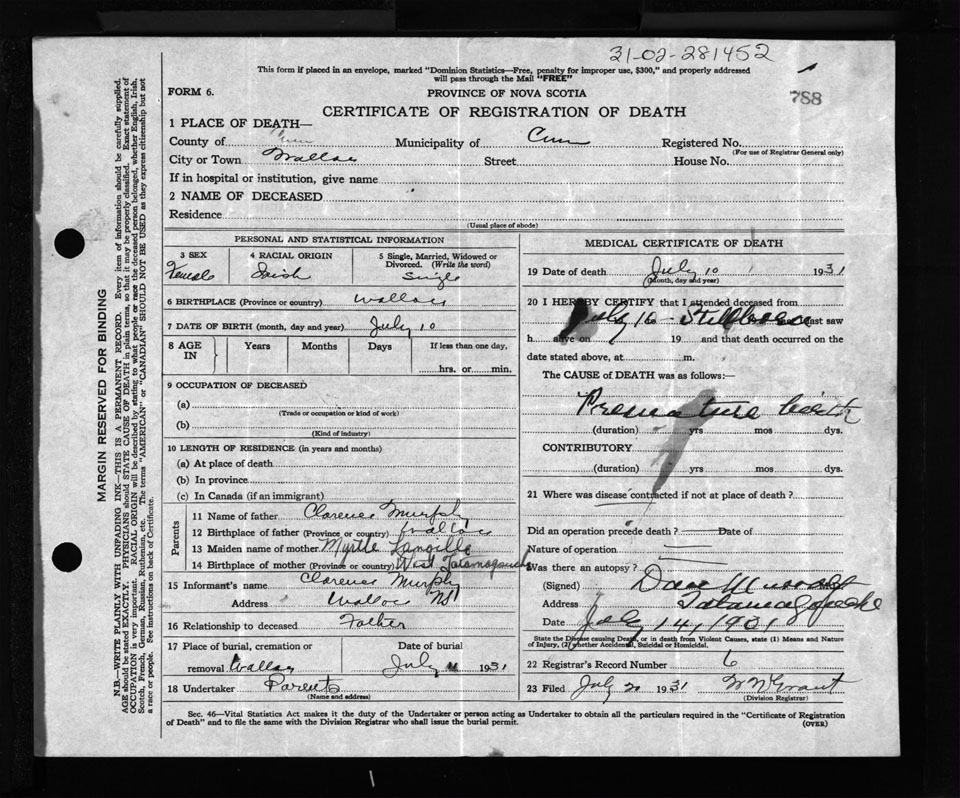 31-02-281452
This form if placed in an envelope, marked "Dominion Statistics—Free, penalty for improper use, $300," and properly addressed
will pass through the Mail "FREE"
788
FORM 6.
PROVINCE OF NOVA SCOTIA
CERTIFICATE OF REGISTRATION OF DEATH
1 PLACE OF DEATH—
County of Municipality of Registered No.
(For use of Registrar General only)
City or Town Wallace Street House No.
If in hospital or institution, give name
2 NAME OF DECEASED
Residence
(Usual place of abode)
PERSONAL AND STATISTICAL INFORMATION
3 SEX 4 RACIAL ORIGIN 5 Single, Married, Widowed or
Divorced. (Write the word)
Female Irish Single
6 BIRTHPLACE (Province or country) Wallace
7 DATE OF BIRTH (month, day and year) July 10
8 AGE IN Years Months Days If less than one day,
hrs. or min.
9 OCCUPATION OF DECEASED
(a)
(Trade or occupation or kind of work)
(b)
(Kind of industry)
10 LENGTH OF RESIDENCE (in years and months)
(a) At place of death
(b) In province
(c) In Canada (if an immigrant)
Parents
11 Name of father Clarence Murphy
12 Birthplace of father (Province or country) Wallace
13 Maiden name of mother Myrtle Langille
14 Birthplace of mother (Province or country) West Tatamagouche
15 Informant's name Clarence Murphy
Address Wallace NS
16 Relationship to deceased Father
17 Place of burial, cremation or Date of burial
removal Wallace July 11 1931
18 Undertaker Parents
(Name and address)
MEDICAL CERTIFICATE OF DEATH
19 Date of death July 10 1931
(Month, day and year)
20 I HEREBY CERTIFY that I attended deceased from
July 10 - Stillborn and last saw
h alive on 19 and that death occurred on the
date stated above, at m.
The CAUSE of DEATH was as follows:—
Premature birth
(duration) yrs mos dys.
CONTRIBUTORY
(duration) yrs mos dys.
21 Where was disease contracted if not at place of death?
Did an operation precede death? Date of
Nature of operation
Was there an autopsy?
(Signed) Dan Murray
Address Tatamagouche
Date July 14, 1931
State the Disease causing Death, or in death from Violent Causes, state (1) Means and Nature
of Injury, (2) whether Accidental, Suicidal or Homicidal.
22 Registrar's Record Number 6
23 Filed July 20 1931 W N Grant
(Division Registrar)
Sec. 46—Vital Statistics Act makes it the duty of the Undertaker or person acting as Undertaker to obtain all the particulars required in the "Certificate of Registration
of Death" and to file the same with the Division Registrar who shall issue the burial permit.
(OVER)
MARGIN RESERVED FOR BINDING
N.B.—WRITE PLAINLY WITH UNFADING INK—THIS IS A PERMANENT RECORD. Every item of information should be carefully supplied.
AGE should be stated EXACTLY. PHYSICIANS should STATE CAUSE OF DEATH in plain terms, so that it may be properly classified. Exact statement of
OCCUPATION is very important. RACIAL ORIGIN will be described by stating to what people or race the deceased person belonged, whether English, Irish,
Scotch, French, German, Russian, Ruthenian, etc. The terms "AMERICAN" or "CANADIAN" SHOULD NOT BE USED as they express citizenship but not
a race or people. See instructions on back of Certificate.